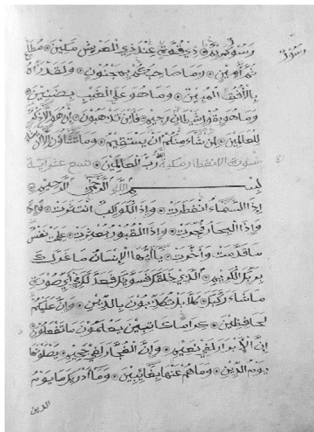 رسول كريم ذي قوة عند ذي العرش مكين مطاع
ثم أمين وما صاحبكم بمجنون ولقد رآه
بالأفق المبين وما هو على الغيب بضنين
وما هو بقول شيطان رجيم فأين تذهبون إن هو إلا ذكر
للعالمين لمن شاء منكم أن يستقيم وما تشاءون إلا أن
رب العالمين
سورة الانفطار مكية
بسم الله الرحمن الرحيم
إذا السماء انفطرت وإذا الكواكب انتثرت
وإذا البحار فجرت وإذا القبور بعثرت علمت نفس
ما قدمت وأخرت يأيها الإنسان ما غرك
بربك الكريم الذي خلقك فسويك فعدلك في أي صورة
ما شاء ركبك كلا بل تكذبون بالدين وإن عليكم
لحافظين كراما كاتبين يعلمون ما تفعلون
إن الأبرار لفي نعيم وإن الفجار لفي جحيم يصلونها
يوم الدين وما هم عنها بغائبين وما أدريك ما يوم
الدين